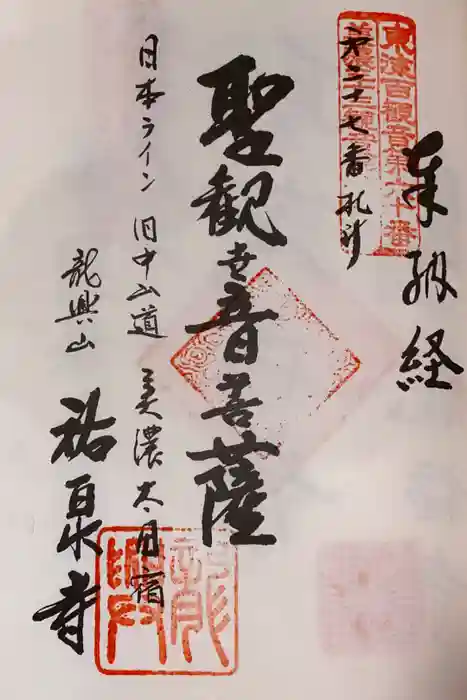 奉納経
東海百観音第六十番
第二十七番札所
聖観世音菩薩
日本ライン 旧中山道 美濃太田宿
龍興山 祐泉寺
龍興